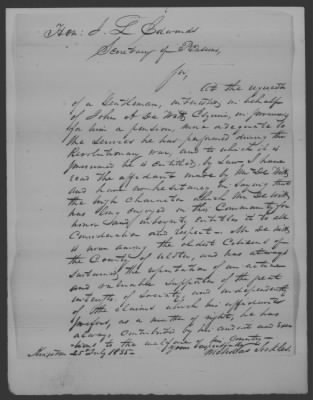 Hon: J. L. Edwards
Secretary of Pensions,
Sir,
At the request
of a Gentleman, interested, in behalf
of John A De Witt Esquire, in procuring
for him a pension, more adequate to
the services he has performed during the
Revolutionary War, and to which it is
presumed he is entitled, by Law, I have
read the affidavits made by Mr. De Witt
and have no hesitancy in saying that
the high Character which Mr. De Witt
has long enjoyed in this Community for
honor and integrity entitles it to all
Consideration and respect - Mr. De Witt
is now among the oldest Citizens of
the County of Ulster, and has always
sustained the reputation of an active
and valuable supporter of the best
interests of Society and independently
of the claims which his affidavits
prefers, as a matter of right, he has
always contributed by his conduct and
to the welfare of his Country -
Yours very respectfully
Kingston 25 July 1835 Nicholas Sickles.